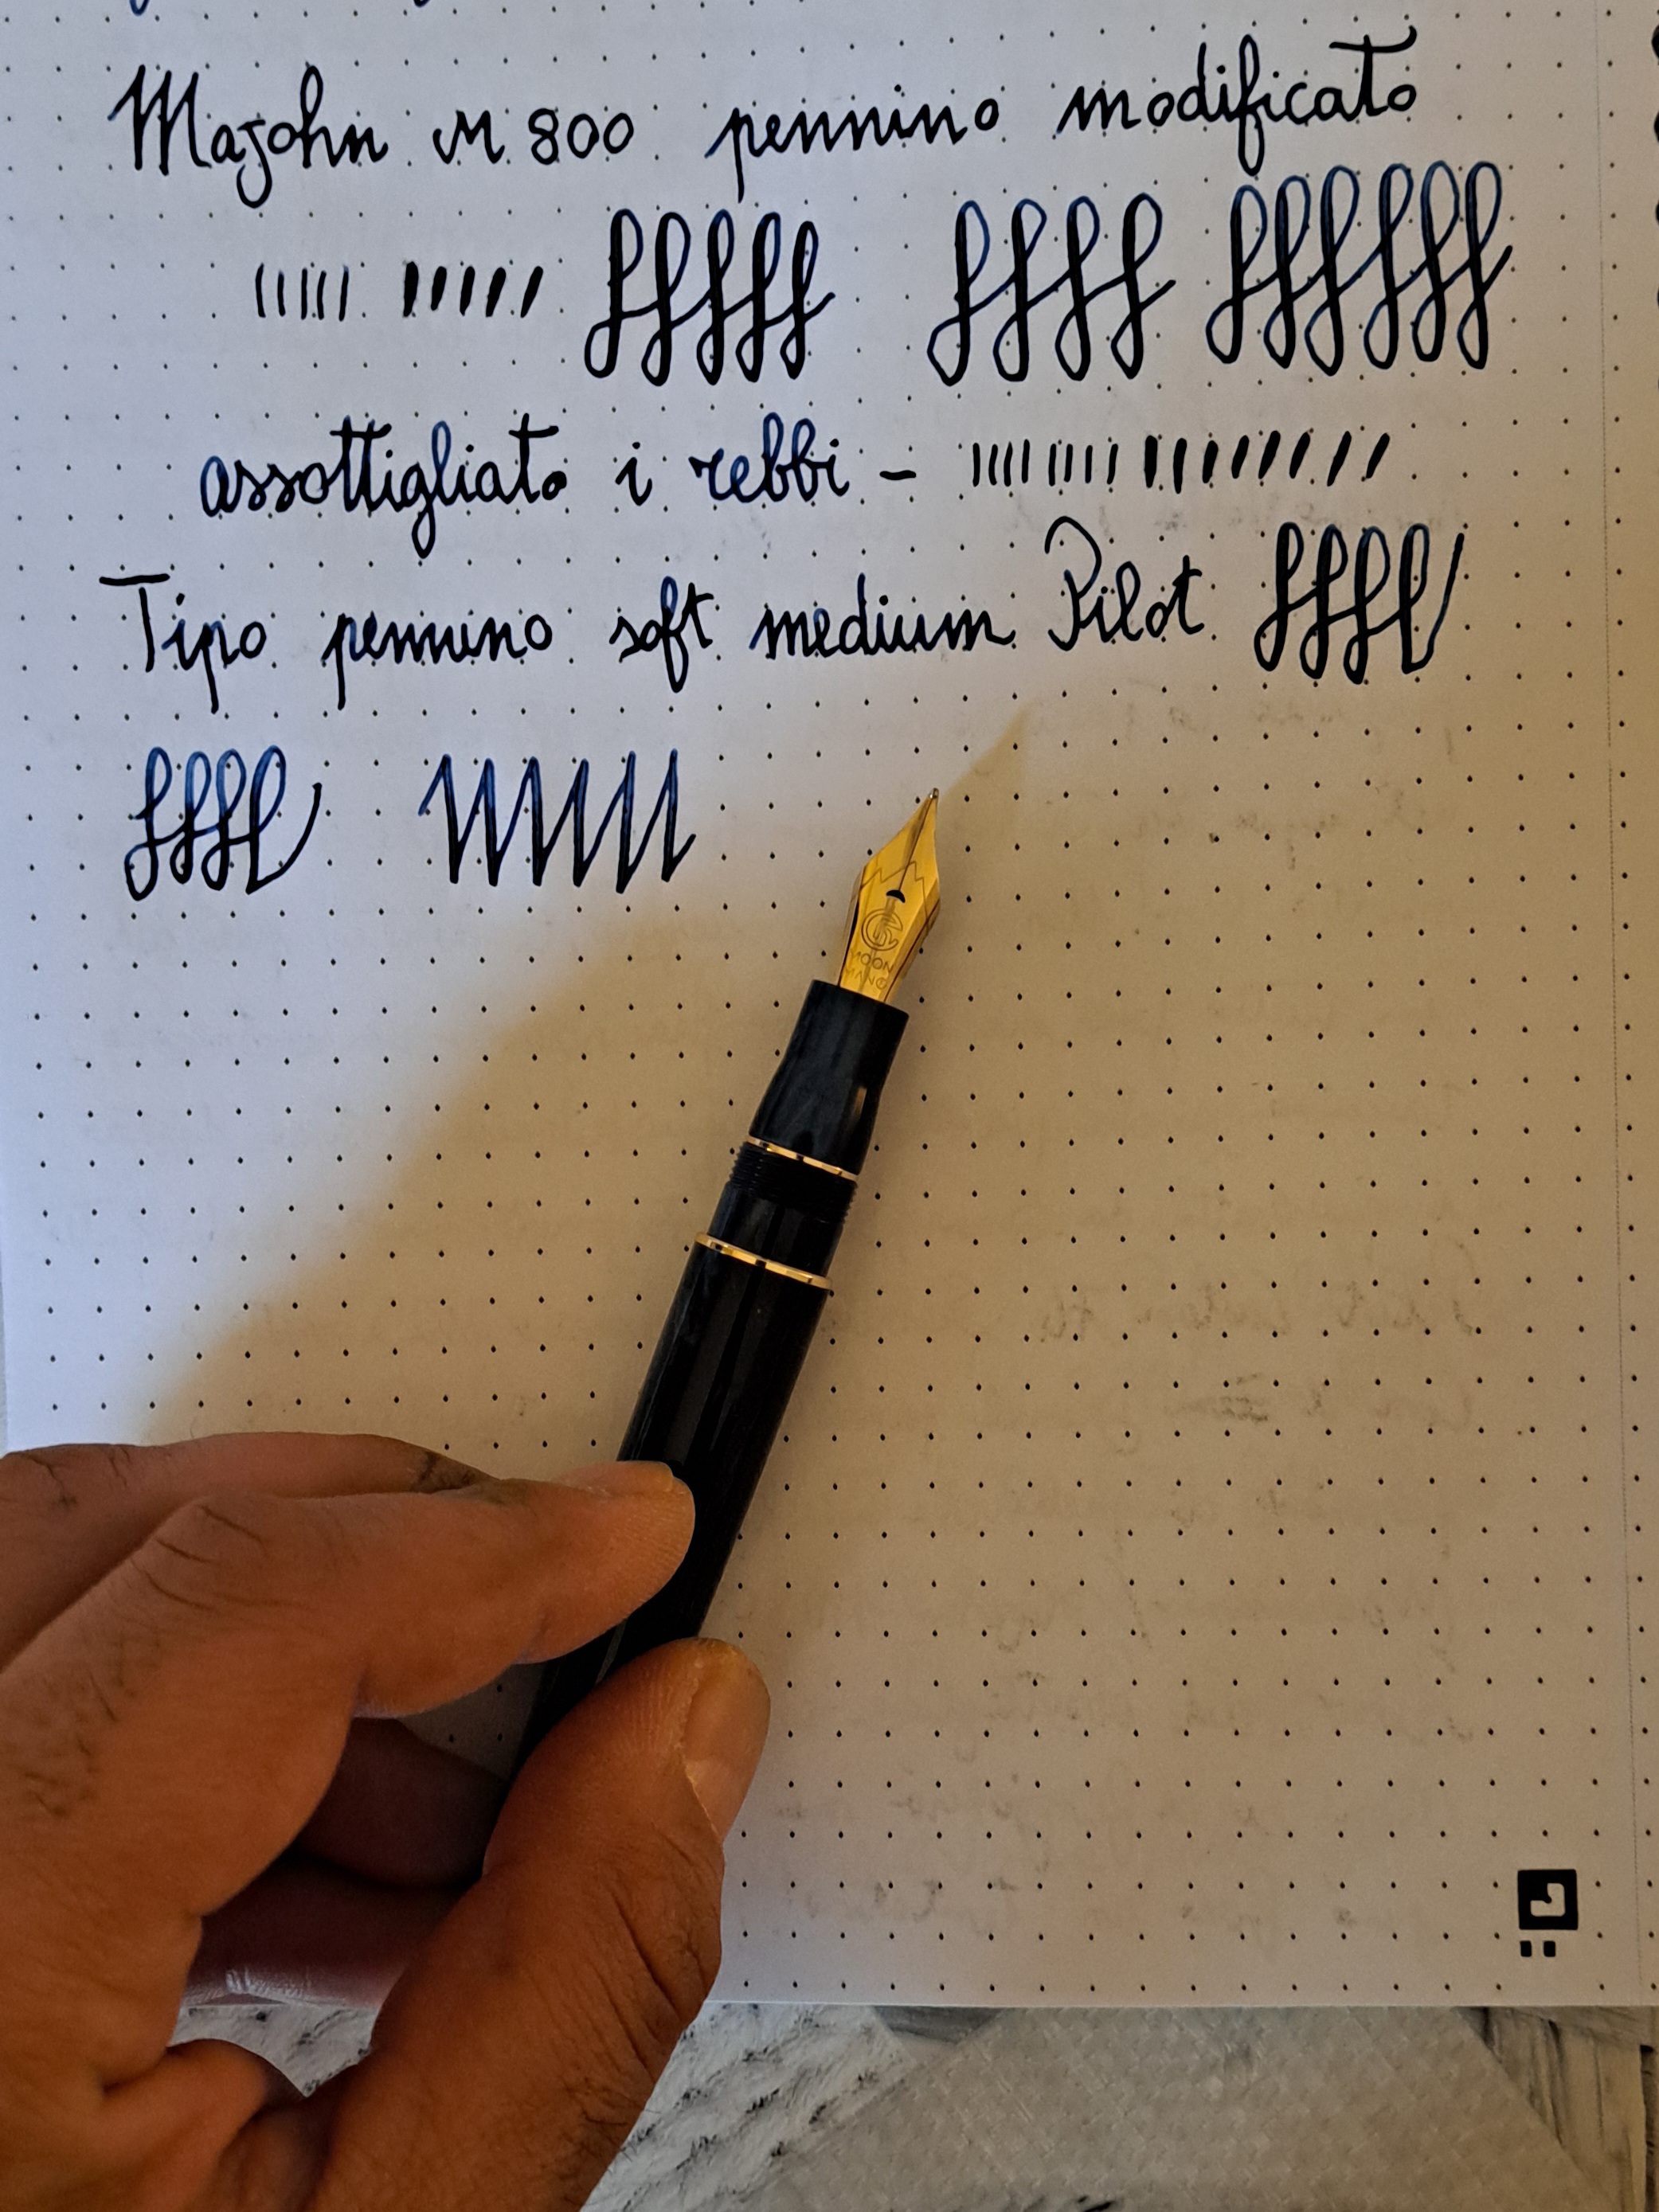 Majohn M 800 pennino modificato
assottigliato i rebbi -
Tipo pennino soft medium Pilot
MOON
MAN